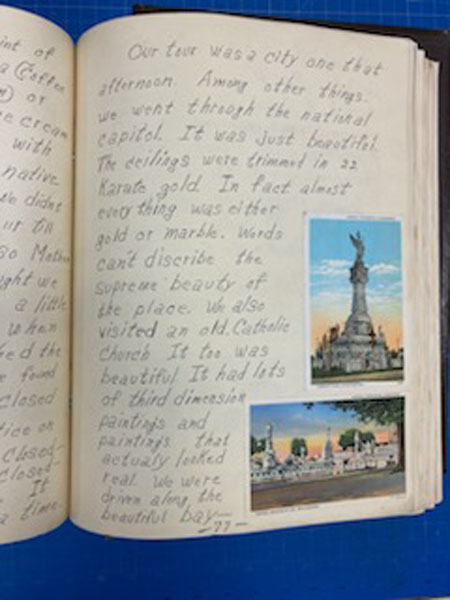 int of
a (coffee
or
ce cream
with
native
We didnt
ur till
so Mothe
ught we
a little
when
ked the
e found
closed
tice on
closed-
closed-
It
a time.
Our tour was a city one that
afternoon. Among other things.
we went through the national
capitol. It was just beautiful.
The ceilings were trimmed in 22
Karate gold. In fact almost
every thing was either
gold or marble. Words
can't discribe the
supreme beauty of
the place. We also
visited an old, Catholic
Church It too was
beautiful It had lots
of third dimension
paintings and
paintings that
actualy looked
real. We were
driven along the
beautiful bay—
-77-